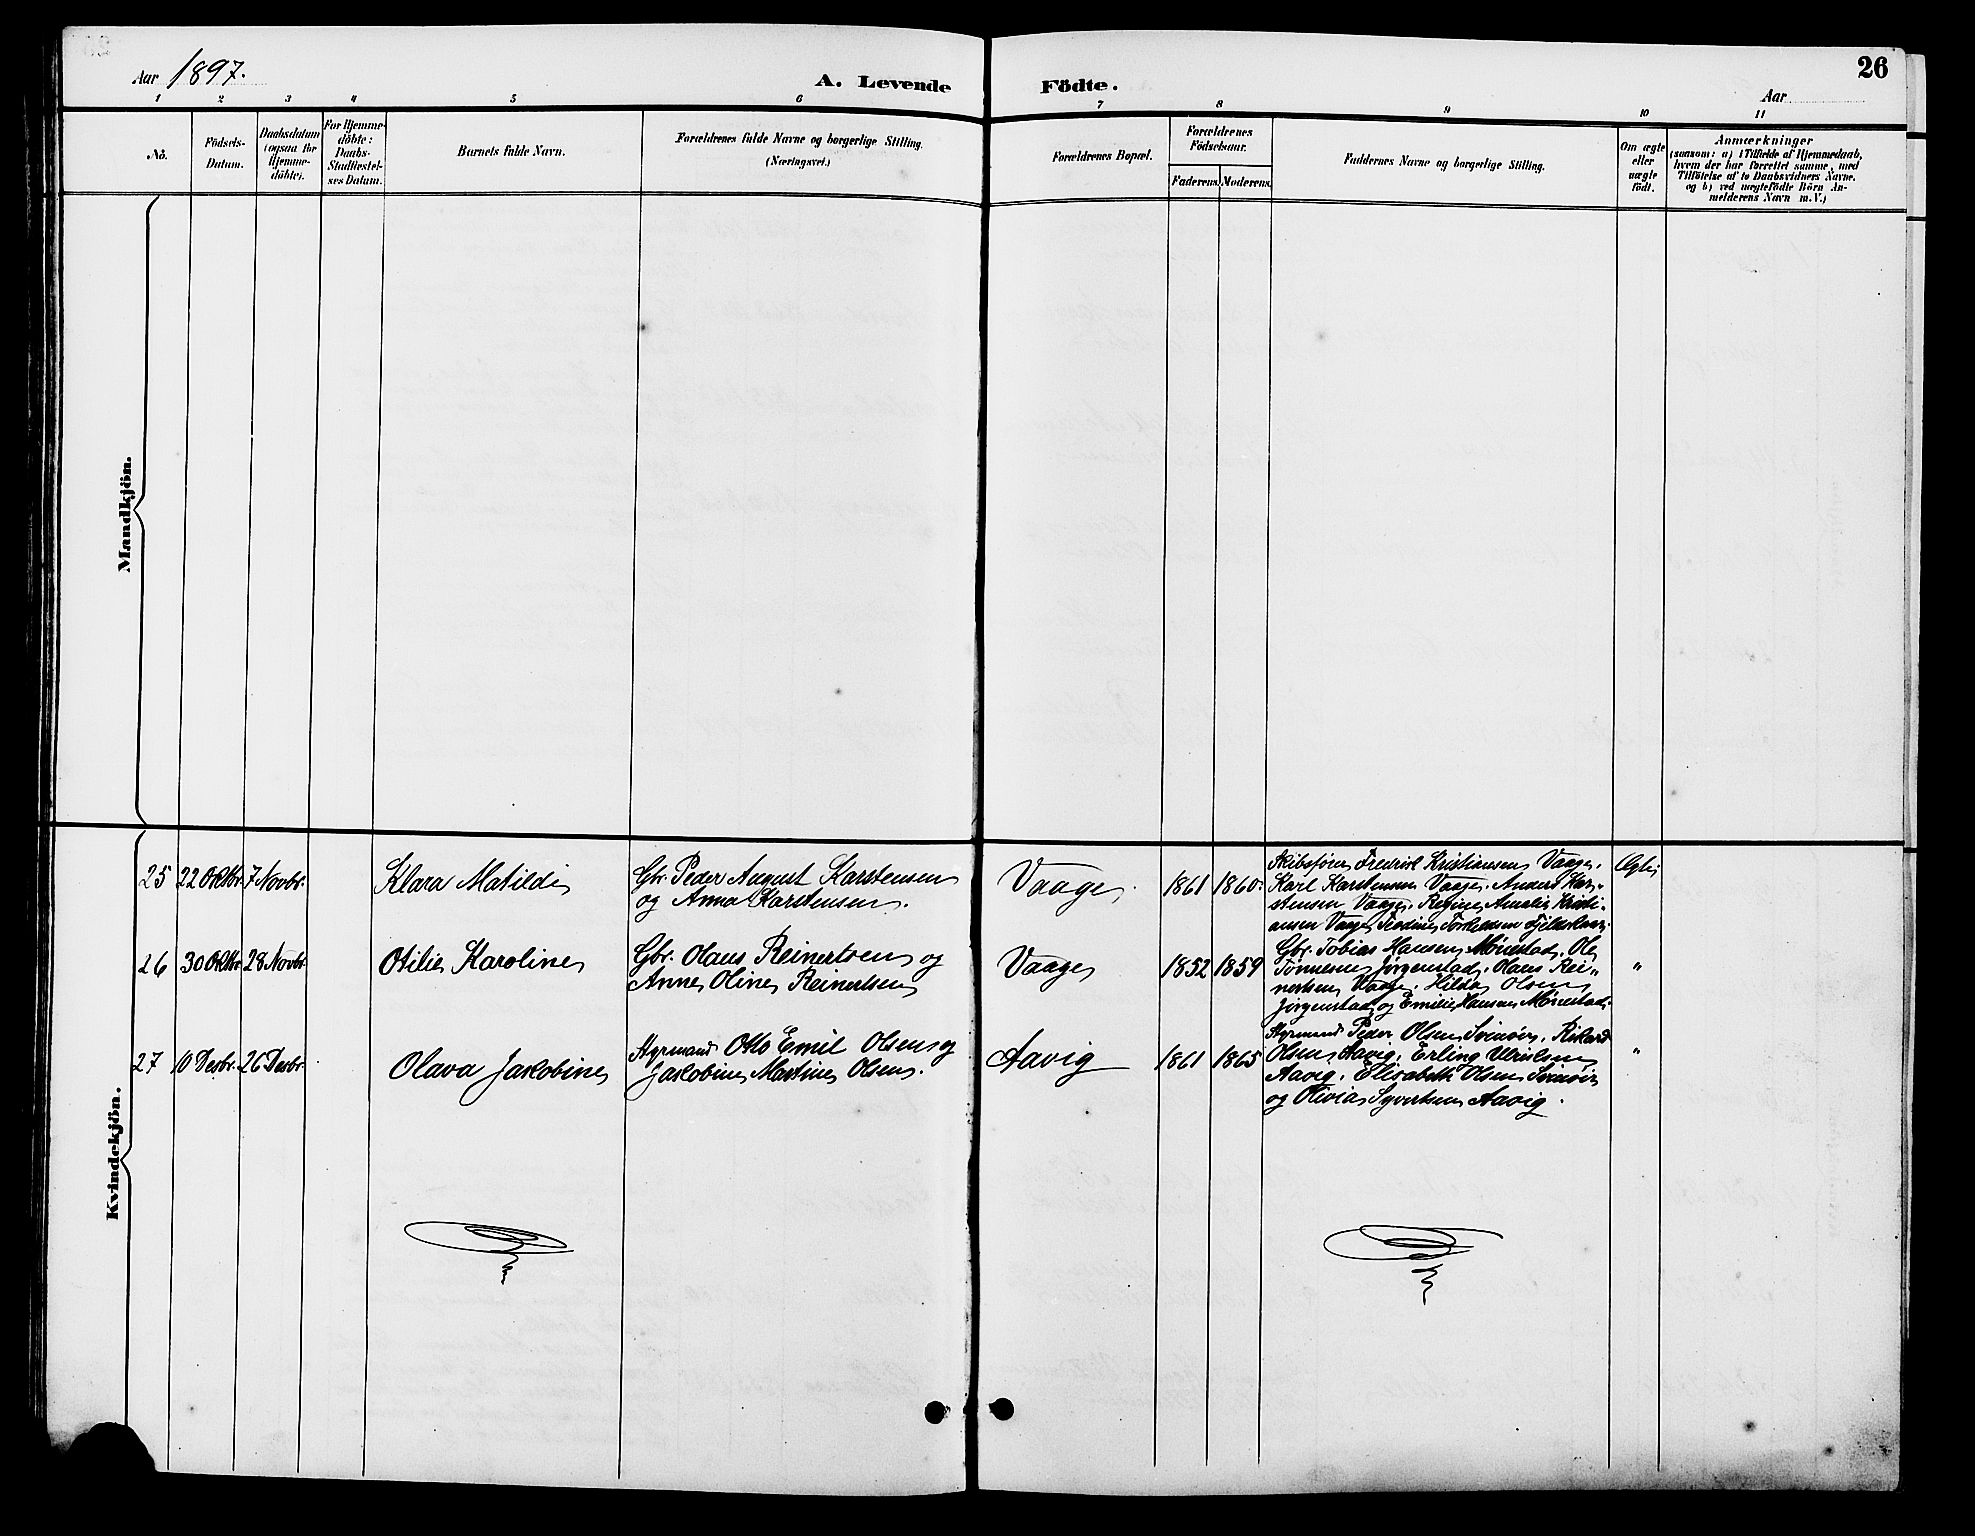 Aar 1897.
A. Levende Födte.
26
Aar
1 2 3 4 5 6 7 8 9 10 11
No.
Födsels-
Datum.
Daabsdatum
(ogsaa for
Hjemme-
döbte).
For Hjemme-
döbte:
Daabs-
Stadfæstel-
ses Datum.
Barnets fulde Navn.
Forældrenes fulde Navne og borgerlige Stilling.
(Næringsvei.)
Forældrenes Bopæl.
Forældrenes
Födselsaar.
Faderens.
Moderens.
Faddernes Navne og borgerlige Stilling.
Om ægte
eller
uægte
födt.
Anmærkninger
(saasom: a) i Tilfælde af Hjemmedaab,
hvem der har forrettet samme, med
Tilföielse af to Daabsvidners Navne.
og b) ved uægtefödte Börn An-
melderens Navn m.V.)
Mandkjön.
Kvindekjön.
25 22 Oktbr. 7 Novbr.
Klara Matilde
Gbr. Peder August Karstensen
og Anna Karstensen.
Vaage.
1861 1860.
Skibsfører Fredrik Kristiansen Vaage.
Karl Karstensen Vaage. Anders Kar-
stensen Vaage. Regine Amalie Kristi-
ansen Vaage, Torkelsen
Ægte
26 30 Oktbr. 28 Novbr.
Otilie Karoline
Gbr. Olaus Reinertsen og
Anne Oline Reinertsen
Vaage
1852 1859
Gbr. Tobias Hansen Mønestad, Ole
Tønnesen Jørgenstad. Olaus Rei-
nertsen Vaage. Hilda Olsen
Jørgenstad og Emilie Hansen Mønestad.
"
27 10 Desbr. 26 Desbr.
Olava Jakobine
Styrmand Otto Emil Olsen og
Jakobine Martine Olsen.
Aavig
1861 1865
Styrmand Peder Olsen Svinør, Rikard
Olsen Aavig, Erling Ulriksen
Aavig, Elisabeth Olsen Svinør
og Olivia Syvertsen Aavig.
"